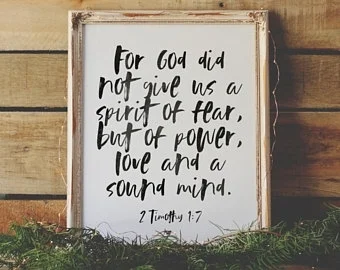 For God did
not give us a
spirit of fear,
but of power,
love and a
sound mind.
2 Timothy 1:7